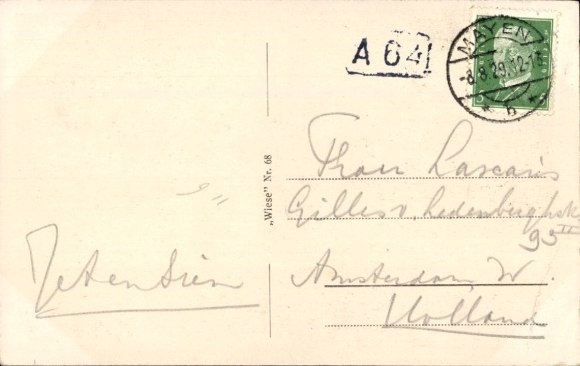 A 64
MAYEN
-8.8.29.12-1
h
Frau Lascaris
Gilles v. Ledenberghstr
93 II
Amsterdam W.
Holland
„Wiese" Nr. 68